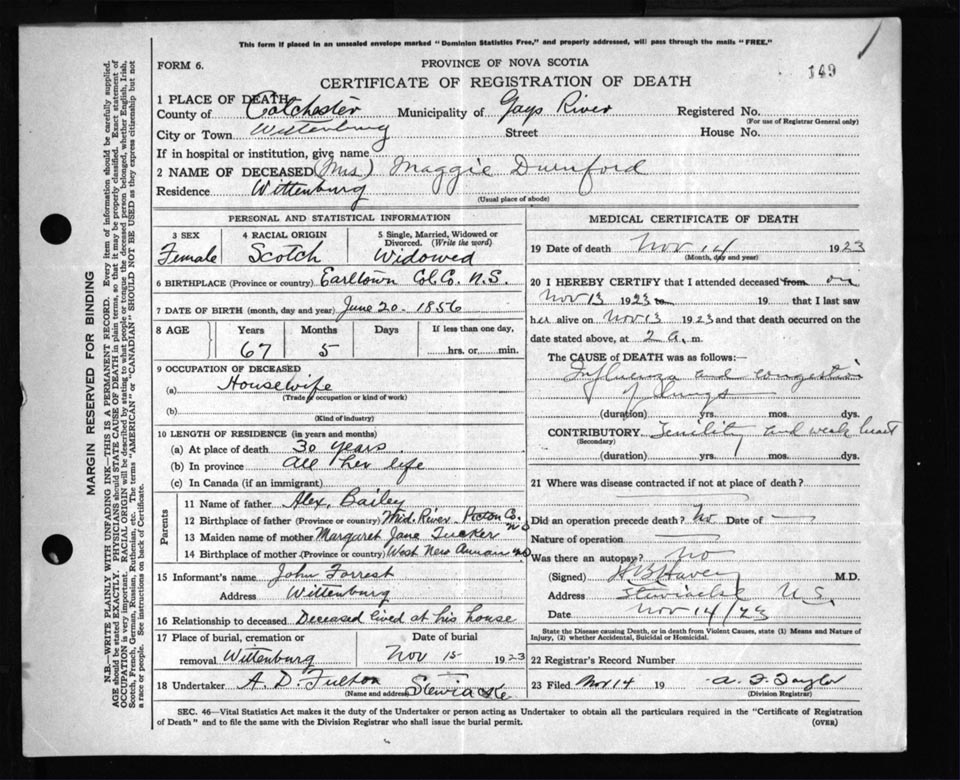 This form if placed in an unsealed envelope marked "Dominion Statistics Free," and properly addressed, will pass through the mails "FREE."
FORM 6.
PROVINCE OF NOVA SCOTIA
149
CERTIFICATE OF REGISTRATION OF DEATH
1 PLACE OF DEATH
County of Colchester Municipality of Gays River Registered No.
(For use of Registrar General only)
City or Town Wittenburg Street House No.
If in hospital or institution, give name
2 NAME OF DECEASED (Mrs) Maggie Durnford
Residence Wittenburg
(Usual place of abode)
PERSONAL AND STATISTICAL INFORMATION
3 SEX 4 RACIAL ORIGIN 5 Single, Married, Widowed or
Divorced. (Write the word)
Female Scotch Widowed
6 BIRTHPLACE (Province or country) Earltown Col. Co. N.S.
7 DATE OF BIRTH (month, day and year) June 20 - 1856
8 AGE Years Months Days If less than one day,
67 5 hrs. or min.
9 OCCUPATION OF DECEASED
(a) Housewife
(Trade, occupation or kind of work)
(b)
(Kind of industry)
10 LENGTH OF RESIDENCE (in years and months)
(a) At place of death 30 years
(b) In province all her life
(c) In Canada (if an immigrant)
Parents
11 Name of father Alex. Bailey
12 Birthplace of father (Province or country) Mid. River Picton Co. NS
13 Maiden name of mother Margaret Jane Tucker
14 Birthplace of mother (Province or country) West New Annan NS
15 Informant's name John Forrest
Address Wittenburg
16 Relationship to deceased Deceased lived at his house
17 Place of burial, cremation or Date of burial
removal Wittenburg Nov 15 1923
18 Undertaker A. D. Fulton Stewiacke
(Name and address)
MEDICAL CERTIFICATE OF DEATH
19 Date of death Nov 14 1923
(Month, day and year)
20 I HEREBY CERTIFY that I attended deceased from on
Nov 13 1923 to 19 that I last saw
her alive on Nov 13 1923 and that death occurred on the
date stated above, at 2 a. m.
The CAUSE of DEATH was as follows:—
Influenza and congestion
of lungs
(duration) yrs. mos. dys.
CONTRIBUTORY Senility and weak heart
(Secondary)
(duration) yrs. mos. dys.
21 Where was disease contracted if not at place of death?
Did an operation precede death? No Date of —
Nature of operation —
Was there an autopsy? no
(Signed) M.D.
Address Stewiacke
Date Nov 14/23
State the Disease causing Death, or in death from Violent Causes, state (1) Means and Nature of
Injury, (2) whether Accidental, Suicidal or Homicidal.
22 Registrar's Record Number
23 Filed Nov 14 19 A. F. Taylor
(Division Registrar)
SEC. 46—Vital Statistics Act makes it the duty of the Undertaker or person acting as Undertaker to obtain all the particulars required in the "Certificate of Registration
of Death" and to file the same with the Division Registrar who shall issue the burial permit. (OVER)
MARGIN RESERVED FOR BINDING
N.B.—WRITE PLAINLY WITH UNFADING INK—THIS IS A PERMANENT RECORD. Every item of information should be carefully supplied.
AGE should be stated EXACTLY. PHYSICIANS should STATE CAUSE OF DEATH in plain terms, so that it may be properly classified. Exact statement of
OCCUPATION is very important. RACIAL ORIGIN will be described by stating to what people or tongue the deceased person belonged, whether English, Irish,
Scotch, French, German, Russian, Ruthenian, etc. The terms "AMERICAN" or "CANADIAN" SHOULD NOT BE USED as they express citizenship but not
a race or people. See instructions on back of Certificate.